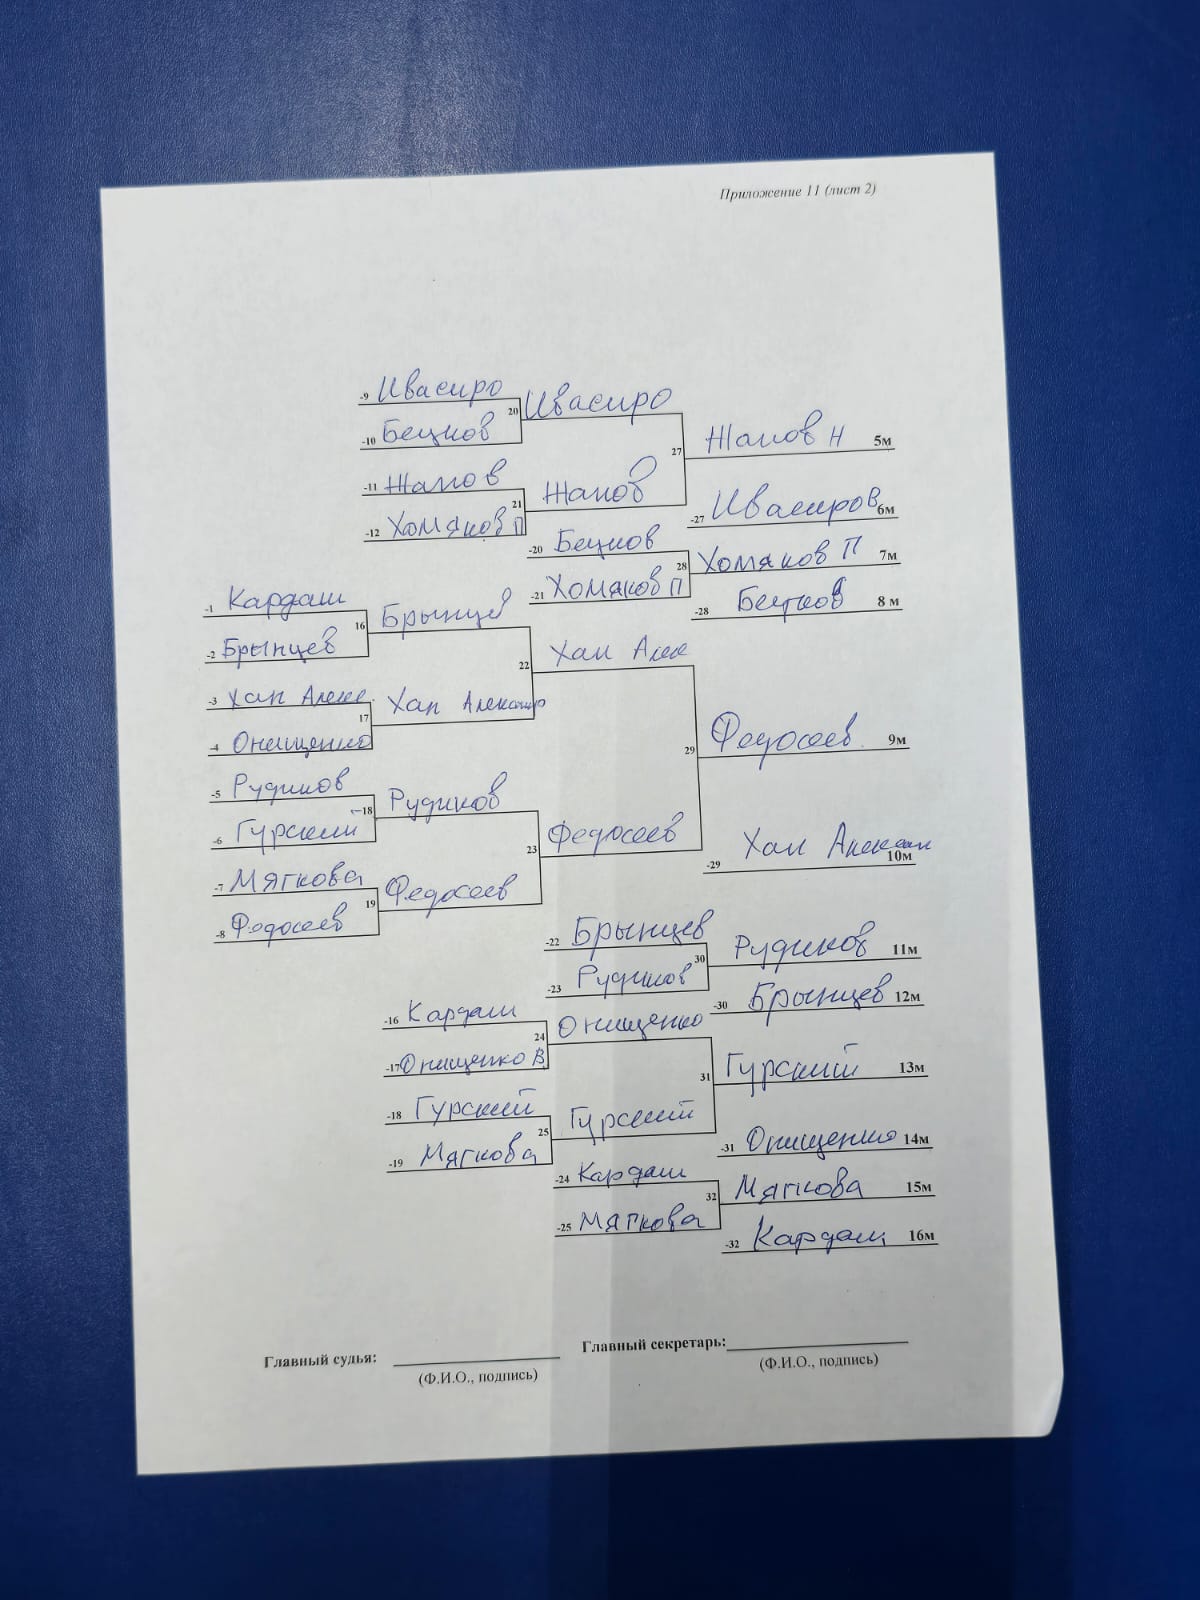 Приложение 11 (лист 2)
-9 Ивасиро
20 Ивасиро
-10 Бецков
27 Жапов Н 5м
-11 Жапов
21 Жапов
-12 Хомяков П
-27 Ивасиров 6м
-20 Бецков
28 Хомяков П 7м
-21 Хомяков П
-28 Бецков 8 м
-1 Кардаш
16 Брынцев
-2 Брынцев
22 Хап Алек
-3 Хап Алекс.
17 Хап Александр
-4 Онищенко
29 Федосеев 9м
-5 Рудиков
18 Рудиков
-6 Гурский
23 Федосеев
-29 Хап Алексан 10м
-7 Мягкова
19 Федосеев
-8 Федосеев
-22 Брынцев
30 Рудиков 11м
-23 Рудиков
-30 Брынцев 12м
-16 Кардаш
24 Онищенко
-17 Онищенко В
31 Гурский 13м
-18 Гурский
25 Гурский
-19 Мягкова
-31 Онищенко 14м
-24 Кардаш
32 Мягкова 15м
-25 Мягкова
-32 Кардаш 16м
Главный судья:
Главный секретарь:
(Ф.И.О., подпись)
(Ф.И.О., подпись)